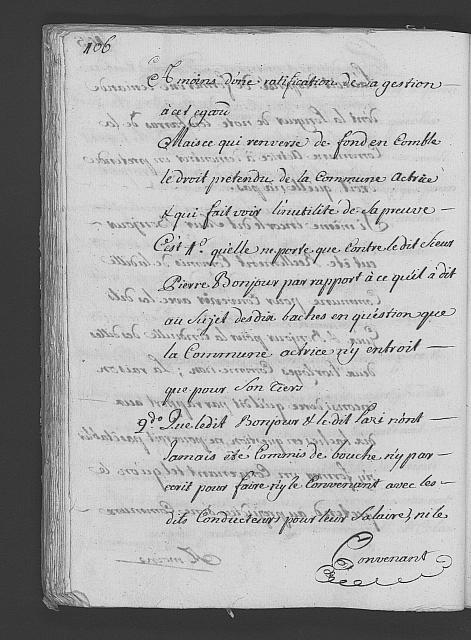 406
A moins d'une ratification de sa gestion
à cet egard
Mais ce qui renverse de fond en Comble
le droit pretendu de la Commune Actrice
& qui fait voir l'inutilité de sa preuve
C'est 1.° qu'elle ne porte que Contre le dit Sieur
Pierre Bonjour par rapport à ce qu'il à dit
au Sujet des dix baches en question que
la Commune actrice n'y entroit
que pour Son tiers
2.do Que le dit Bonjour & le dit n'ont
Jamais été Commis de bouche n'y par
ecrit pour faire n'y le Convenant avec les
dits Conducteurs pour leur Salaire, ni le
Convenant